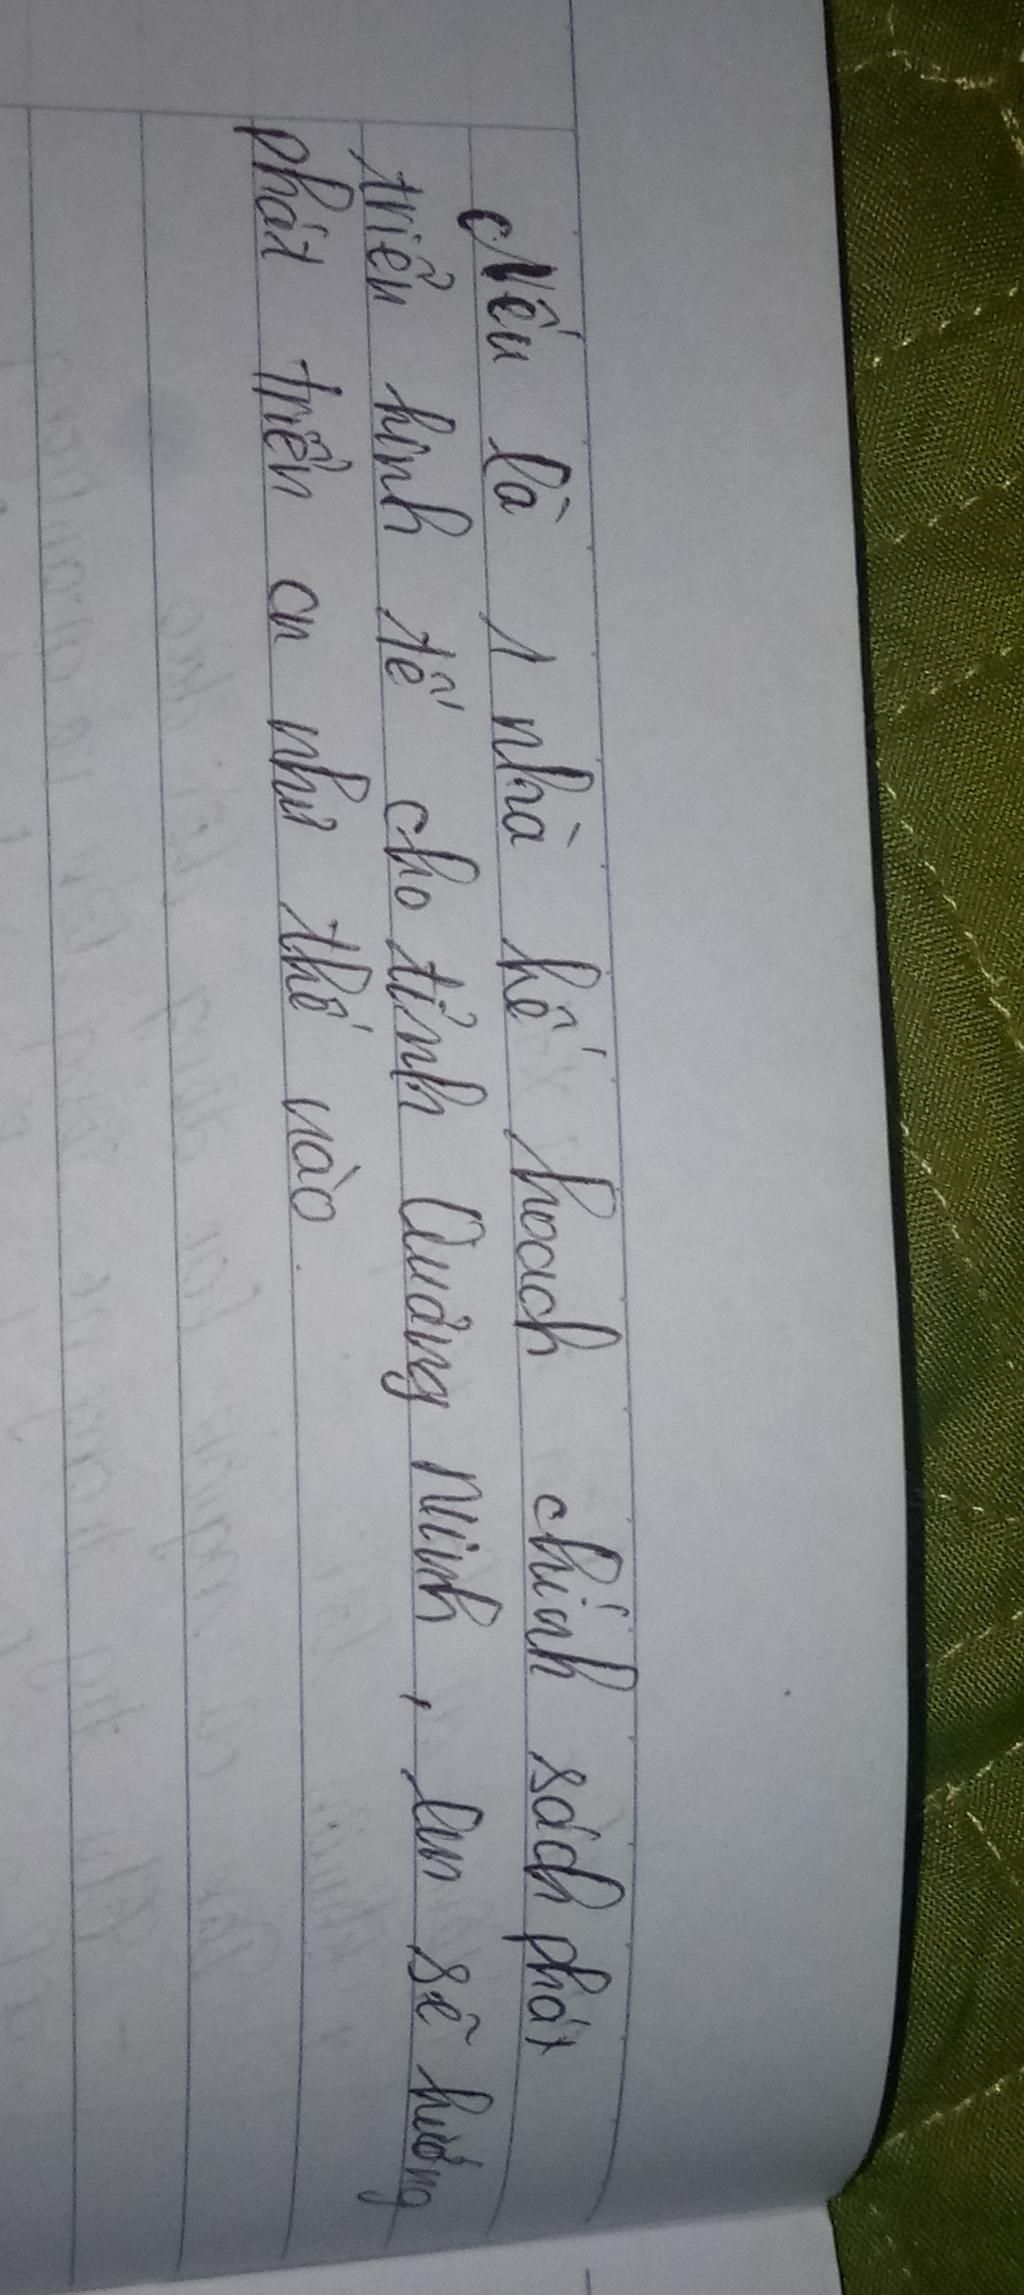 Nếu là 1 nhà kế hoạch chính sách phát
triển kinh tế cho tỉnh Quảng Ninh, em sẽ hướng
phát triển cn như thế nào.